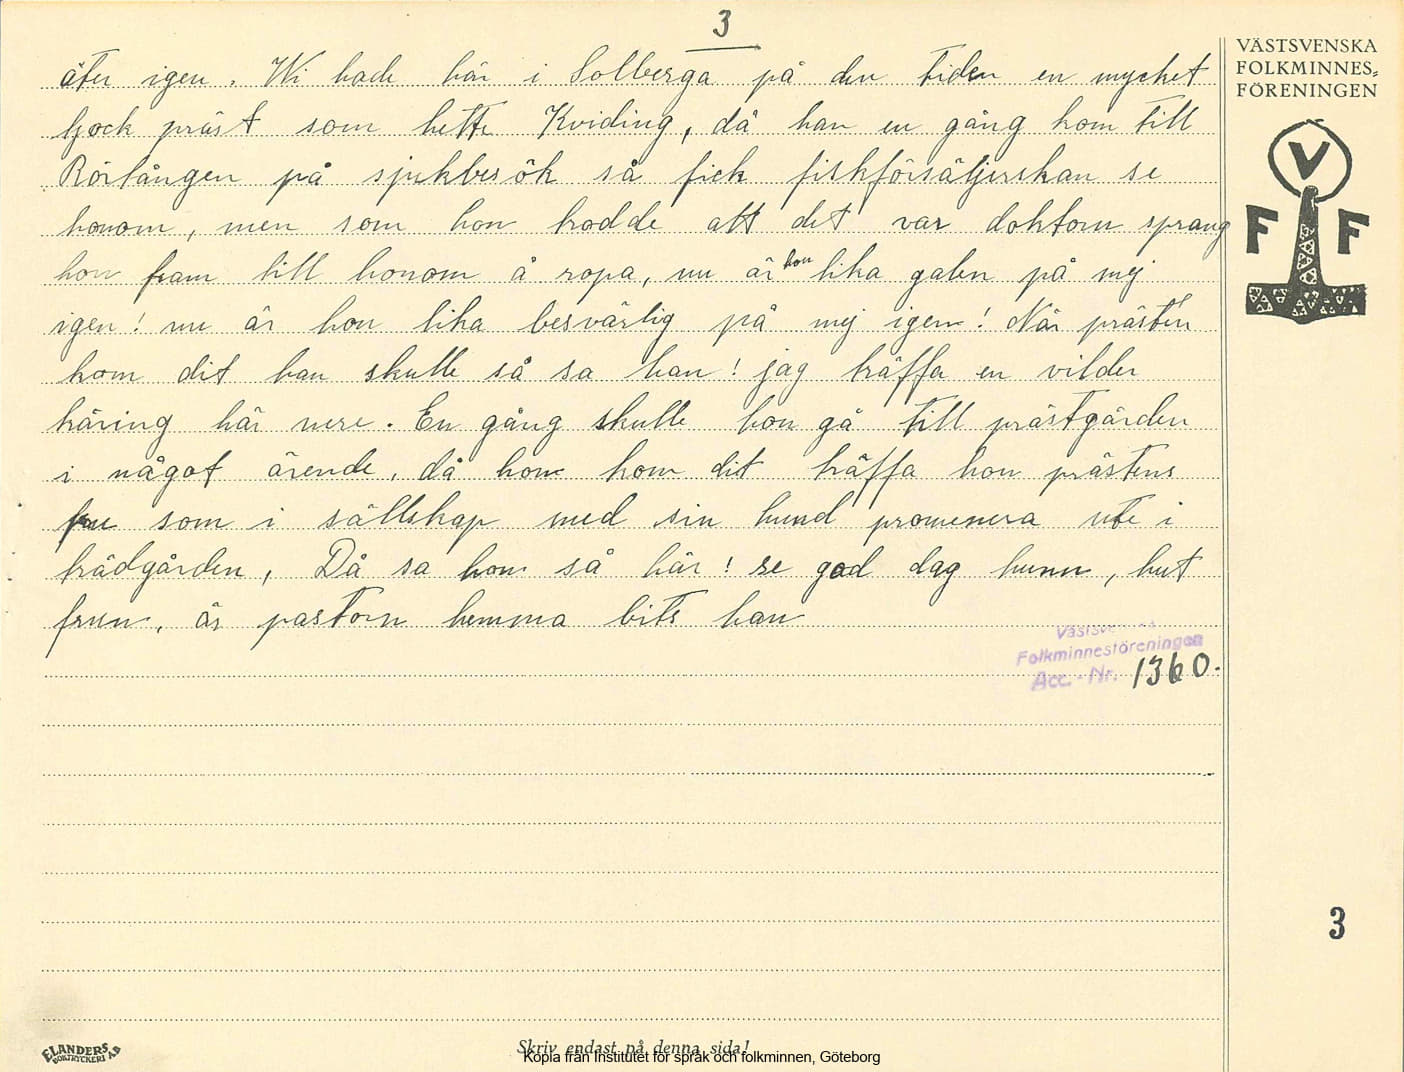 3
åter igen. Wi hade här i Solberga på den tiden en mycket
tjock präst som hette Kviding, då han en gång kom till
Rörtången på sjukbesök så fick fiskförsäljerskan se
honom, men som hon trodde att det var doktorn sprang
hon fram till honom å ropa, nu är hon lika galen på mej
igen! nu är hon lika besvärlig på mej igen! När prästen
kom dit han skulle så sa han! jag träffa en vilder
käring här nere. En gång skulle hon gå till prästgården
i något ärende, då hon kom dit träffa hon prästens
fru som i sällskap med sin hund promenera ute i
trädgården, Då sa hon så här! se god dag hunn, hut
frun, är pastorn hemma bits han
Folkminnesföreningen
Acc.-Nr. 1360.
VÄSTSVENSKA
FOLKMINNES-
FÖRENINGEN
V
F F
3
ELANDERS
BOKTRYCKERI AB
Skriv endast på denna sida!
Kopia från Institutet för språk och folkminnen, Göteborg